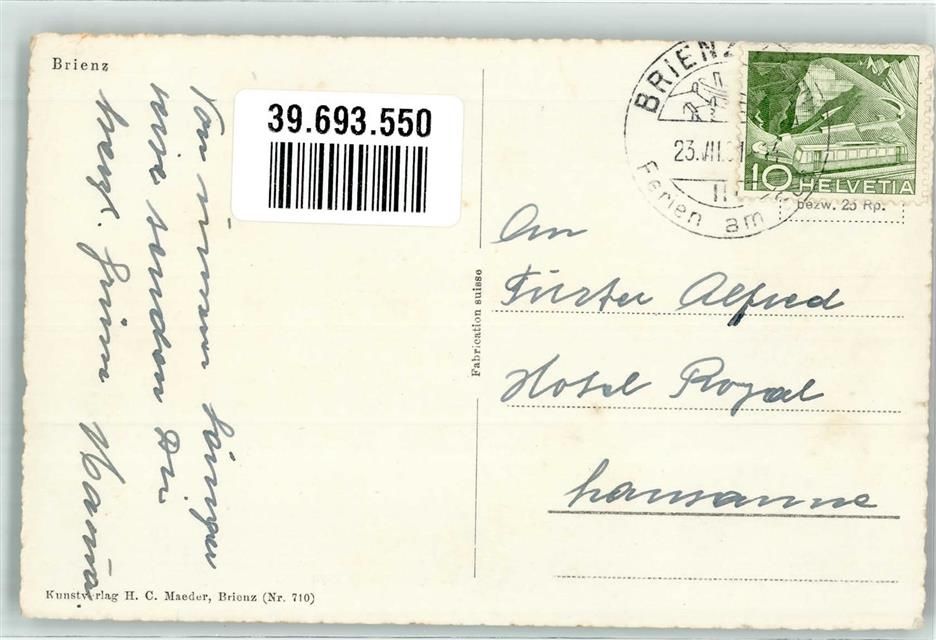 Brienz
39.693.550
BRIENZ
23.VII.51
Ferien am
10 HELVETIA
bezw. 25 Rp.
wir senden Dir
herzl. Grüsse Mama
Fabrication suisse
An
Fürster Alfred
Hotel Royal
Lausanne
Kunstverlag H. C. Maeder, Brienz (Nr. 710)